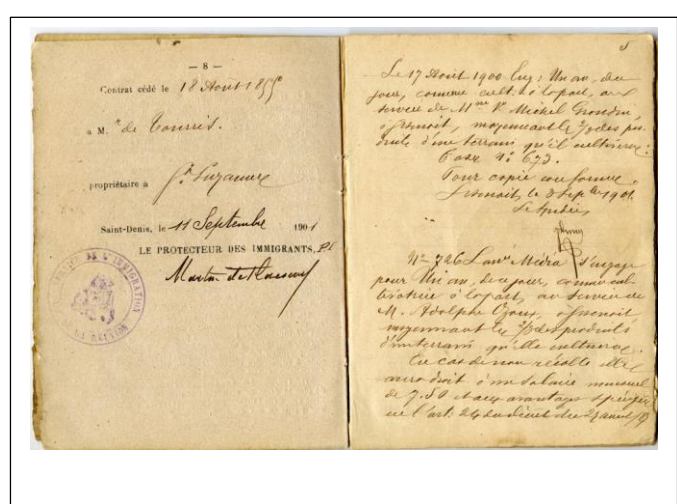 — 8 —
Contrat cédé le 18 Août 1899
a M. de Tourris.
propriétaire a Ste Suzanne
Saint-Denis, le 11 Septembre 1901
LE PROTECTEUR DES IMMIGRANTS, P.I.
DE L'IMMIGRATION
DE LA RÉUNION
5
Le 17 Août 1900 Eng: Un an, du
jour, comme cultr à la part, au
service de Mme Ve Michel Grondin,
, moyennant les 2/3 des pro
duits d'un terrain qu'il cultivera.
Case No 673.
Pour copie conforme.
le 3 Septbre 1901.
Le Syndic,
No 726 s'engage
pour Un an, de ce jour, comme cul-
à la part, au service de
M. Adolphe
moyennant les 2/3 des produits
d'un terrain qu'elle cultivera.
En cas de non récolte elle
aura droit à un salaire mensuel
de 7.50 et aux avantages spécifiés
en l'art. du décret du